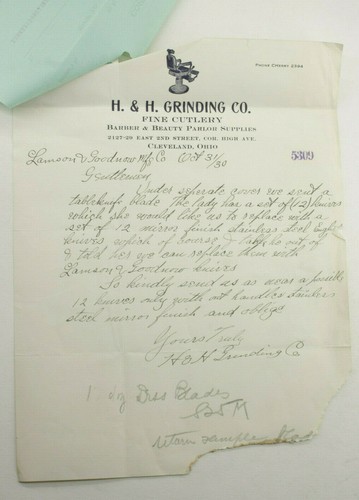 PHONE CHERRY 2584
H. & H. GRINDING CO.
FINE CUTLERY
BARBER & BEAUTY PARLOR SUPPLIES
2127-29 EAST 2ND STREET, COR. HIGH AVE.
CLEVELAND, OHIO
Lamson & Goodnow Mfg Co Oct 31/30
5309
Gentlemen
Under seperate cover we sent a
tableknife blade. The lady has a set of (12) knives
which she would like us to replace with a
set of 12 mirror finish stainless steel
knives which of course I out of
I told her we can replace them with
Lamson & Goodnow knives
So kindly send us as near a possible
12 knives only with out handles stainless
steel mirror finish and oblige
Yours Truly
H & H Grinding Co
1 doz Blades
return sample